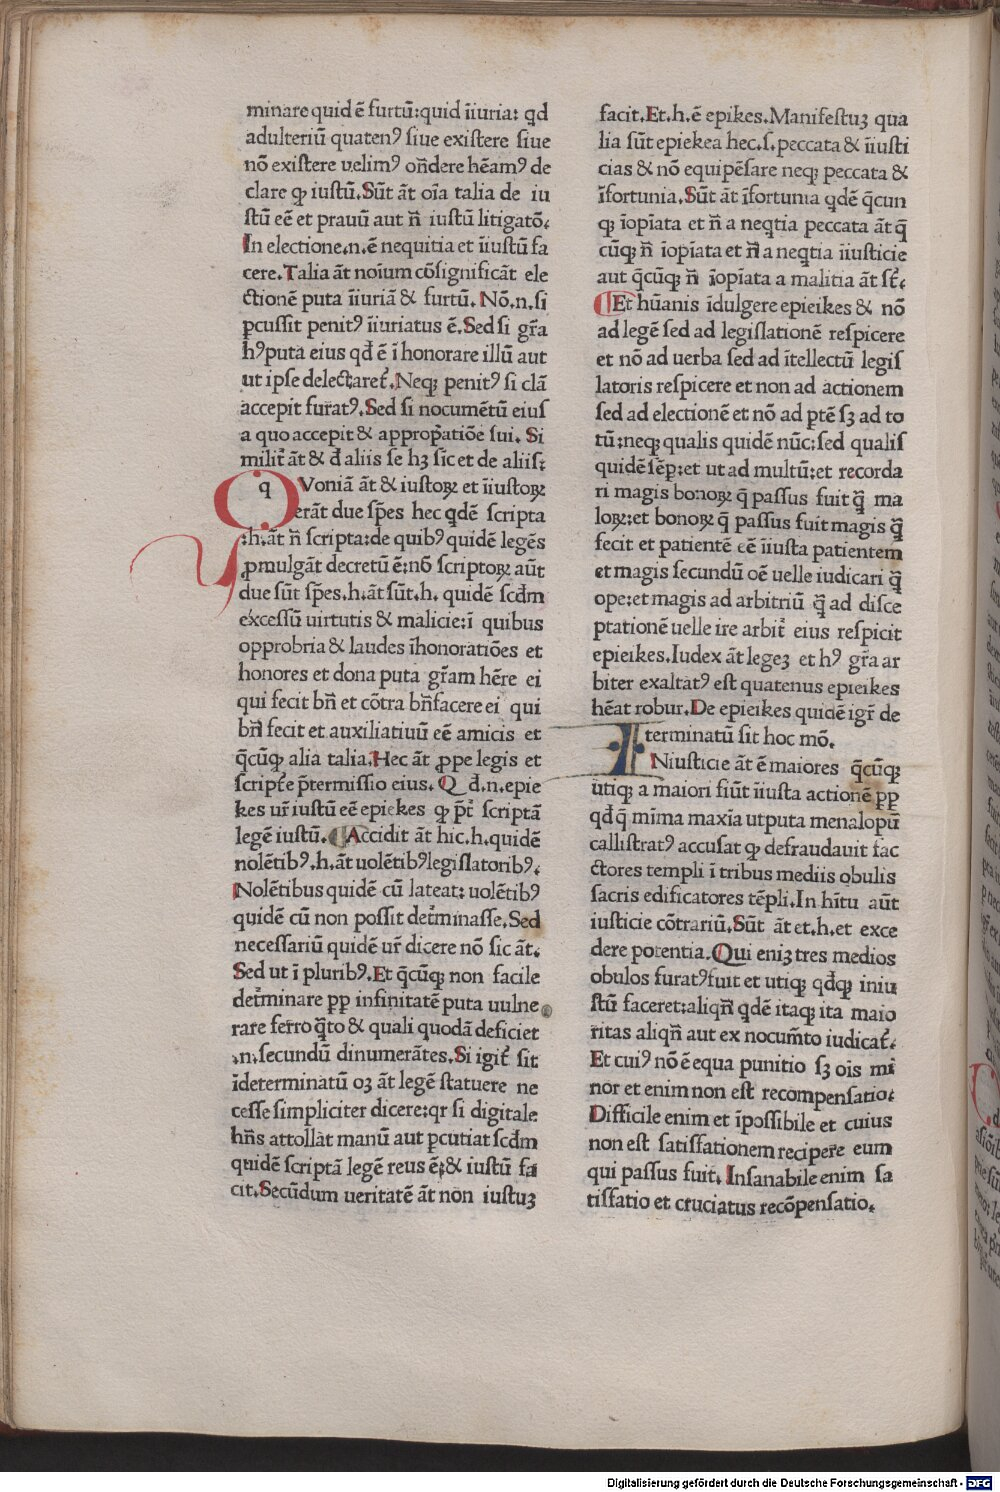 minare quid ē furtū:quid īiuria: qd
adulteriū quatenꝰ ſiue exiſtere ſiue
nō exiſtere uelimꝰ oñdere hēamꝰ de
clare ꝙ iuſtū.Sūt āt oīa talia de iu
ſtū eē et prauū aut ñ iuſtū litigatō.
In electione.n.ē nequitia et īiuſtū fa
cere.Talia āt noīum cōſignificāt ele
ctionē puta īiuriā & furtū.Nō.n.ſi
ꝑcuſſit penitꝰ īiuriatus ē.Sed ſi gr̄a
hꝰputa eius qđ ē ī honorare illū aut
ut ipſe delectaret̄.Neqꝫ penitꝰ ſi clā
accepit furatꝰ.Sed ſi nocumētū eiuſ
a quo accepit & appropatiōe ſui.Si
milit̄ āt & đ aliis ſe hꝫ ſic et de aliis:
qVoniā āt & iuſtoꝝ et īiuſtoꝝ
erāt due ſp̄es hec qdē ſcripta
:h.āt ñ ſcripta:de quibꝰ quidē legēs
ꝓmulgāt decretū ē:nō ſcriptoꝝ aūt
due ſūt ſp̄es.h.āt ſūt.h. quidē ſcđm
exceſſū uirtutis & malicie:ī quibus
opprobria & laudes īhonoratiōes et
honores et dona puta gr̄am hēre ei
qui fecit bñ et cōtra bñfacere ei qui
bñ fecit et auxiliatiuū eē amicis et
q̄cūqꝫ alia talia.Hec āt ꝓpe legis et
ſcript̄e p̄termiſſio eius.Q đ.n.epie
kes ur̄ iuſtū eē epiekes ꝙ p̄t̄ ſcriptā
legē iuſtū.Accidit āt hic.h.quidē
nolētibꝰ.h.āt uolētibꝰlegiſlatoribꝰ.
Nolētibus quidē cū lateat: uolētibꝰ
quidē cū non poſſit det̄minaſſe.Sed
neceſſariū quidē ur̄ dicere nō ſic āt.
Sed ut ī pluribꝰ.Et q̄cūqꝫ non facile
det̄minare ꝓꝑ infinitatē puta uulne
rare ferro q̄to & quali quodā deficiet
.n.ſecundū dinumerātes.Si igit̄ ſit
īdeterminatū oꝫ āt legē ſtatuere ne
ceſſe ſimpliciter dicere:qr ſi digitale
hñs attollāt manū aut ꝑcutiat ſcđm
quidē ſcriptā legē reus ē:& iuſtū fa
cit.Secūdum ueritatē āt non iuſtuꝫ
facit.Et.h.ē epikes.Manifeſtuꝫ qua
lia ſūt epiekea hec.ſ.peccata & īiuſti
cias & nō equipēſare neqꝫ peccata &
īfortunia.Sūt āt īfortunia qdē q̄cun
qꝫ īopīata et ñ a neqtia peccata āt q̄
cūqꝫ ñ īopīata et ñ a neqtia īiuſticie
aut q̄cūqꝫ ñ īopīata a malitia āt ſt̄.
Et hūanis īdulgere epieikes & nō
ad legē ſed ad legiſlationē reſpicere
et nō ad uerba ſed ad ītellectū legiſ
latoris reſpicere et non ad actionem
ſed ad electionē et nō ad ꝑtē ſꝫ ad to
tū:neqꝫ qualis quidē nūc:ſed qualiſ
quidē ſēp:et ut ad multū:et recorda
ri magis bonoꝝ q̄ paſſus fuit q̄ꝫ ma
loꝝ:et bonoꝝ q̄ paſſus fuit magis q̄ꝫ
fecit et patientē eē īiuſta patientem
et magis ſecundū oē uelle iudicari q̄ꝫ
ope:et magis ad arbitriū q̄ꝫ ad diſce
ptationē uelle ire arbit̄ eius reſpicit
epieikes.Iudex āt legeꝫ et hꝰ gr̄a ar
biter exaltatꝰ eſt quatenus epieikes
hēat robur.De epieikes quidē igr̄ de
terminatū ſit hoc mō.
INiuſticie āt ē maiores q̄cūqꝫ
utiqꝫ a maiori fiūt īiuſta actionē ꝓꝑ
qđ q̄ mīma maxīa utputa menalopū
calliſtratꝰ accuſat ꝙ defraudauit fac
ctores templi ī tribus mediis obulis
ſacris edificatores tēpli.In hītu aūt
iuſticie cōtrariū.Sūt āt et.h.et exce
dere potentia.Qui eniꝫ tres medios
obulos furatꝰfuit et utiqꝫ qđqꝫ iniu
ſtū faceret:aliqñ qdē itaqꝫ ita maio
ritas aliqñ aut ex nocum̄to iudicat̄.
Et cuiꝰ nō ē equa punitio ſꝫ ois mi
nor et enim non eſt recompenſatio:
Difficile enim et īpoſſibile et cuius
non eſt ſatiſfationem recipere eum
qui paſſus fuit.Inſanabile enim ſa
tiſfatio et cruciatus recōpenſatio.
Digitalisierung gefördert durch die Deutsche Forschungsgemeinschaft - DFG